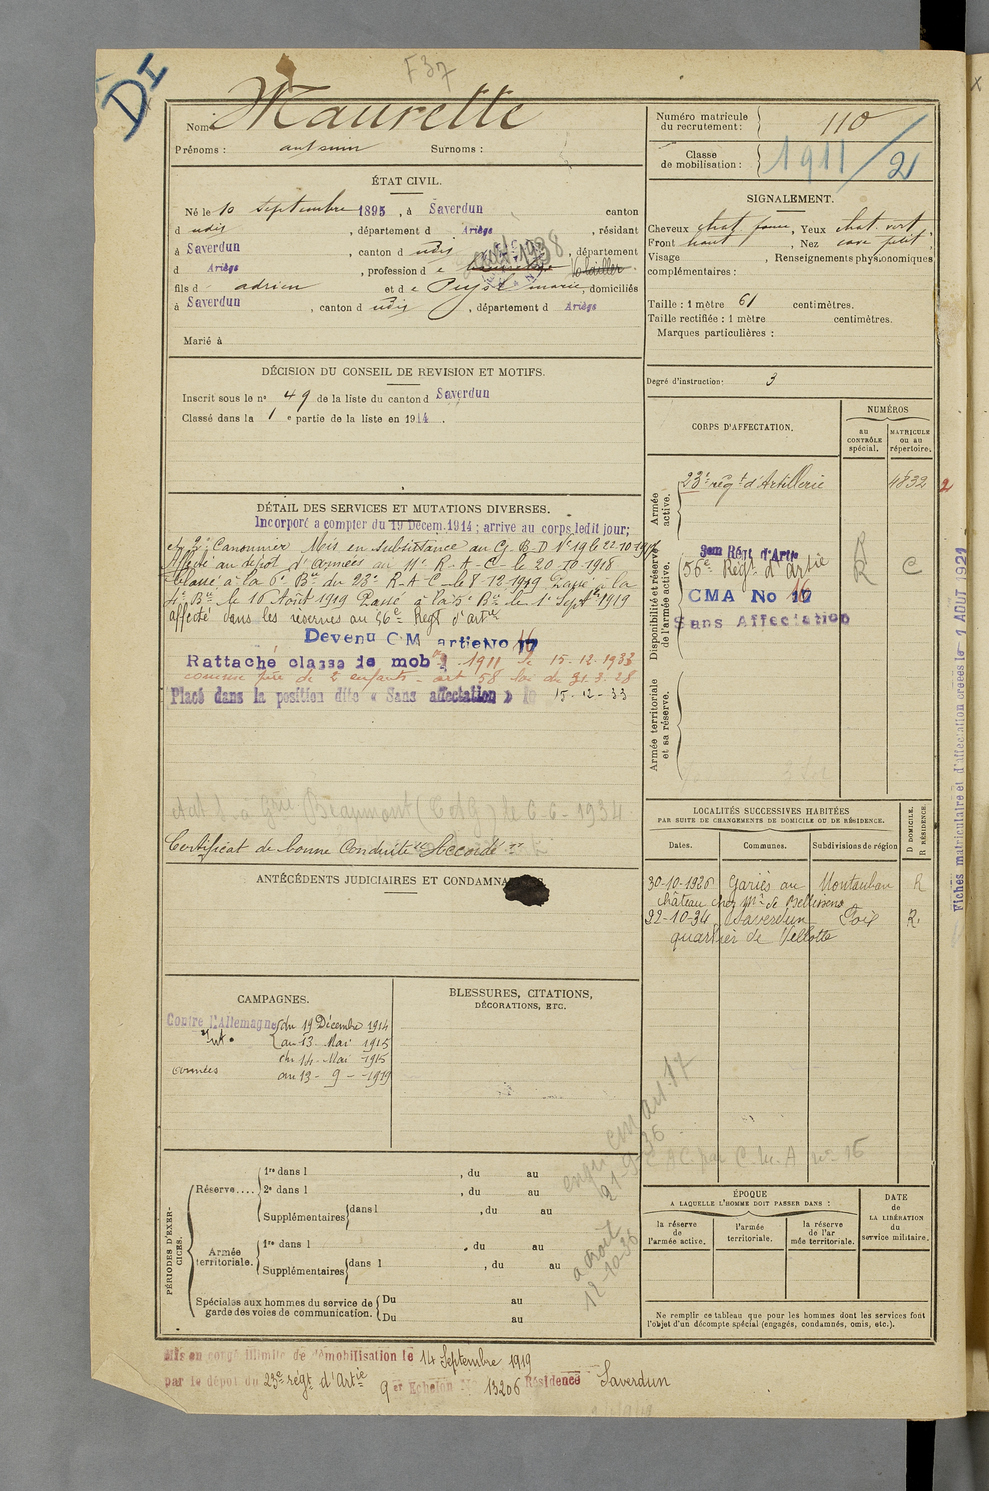 DI
F37
Nom Maurette
Prénoms : Surnoms :
Numéro matricule du recrutement : 110
Classe de mobilisation : 1911 / 21
ÉTAT CIVIL.
Né le 10 septembre 1895, à Saverdun canton
d udis, département d Ariège, résidant
à Saverdun, canton d udis, département
d Ariège, profession d e
fils d adrien et d e Pujol marie, domiciliés
à Saverdun, canton d udis, département d Ariège
Marié à
SIGNALEMENT.
Cheveux chat, Yeux chat. vert
Front haut, Nez
Visage, Renseignements physionomiques
complémentaires :
Taille : 1 mètre 61 centimètres.
Taille rectifiée : 1 mètre centimètres.
Marques particulières :
Degré d'instruction : 3
DÉCISION DU CONSEIL DE REVISION ET MOTIFS.
Inscrit sous le n° 49 de la liste du canton d Saverdun
Classé dans la 1 e partie de la liste en 1914.
DÉTAIL DES SERVICES ET MUTATIONS DIVERSES.
Incorporé à compter du 19 Décem. 1914 ; arrivé au corps ledit jour;
et 2e Canonnier Mis en subsistance au
Affecté au dépôt d'années au 11e R-A-C- le 20-10-1918
Classé à la 6e Bie du 23e R-A-C-le 8-12-1919 Passé à la
4e Bie le 16 Août 1919 Passé à la 5e Bie le 1er Septbre 1919
affecté dans les réserves au 56e Régt d'artie
Devenu CM artie No 17 16
Rattaché classe de mob 1911 le 15.12.1933
comme père de 2 enfants - art 58 loi du 31.3.28
Placé dans la position dite « Sans affectation » le 15-12-33
Beaumont (T et G) le 6-6-1934
Certificat de bonne Conduite "Accordé"
ANTÉCÉDENTS JUDICIAIRES ET
CORPS D'AFFECTATION.
NUMÉROS
au contrôle spécial.
MATRICULE ou au répertoire.
Armée active.
23e régt d'Artillerie 4832 2
Disponibilité et réserve de l'armée active.
Régt d'Artie
56e Régt d'Artie R C
R
CMA No 17 16
Sans Affectation
Armée territoriale et sa réserve.
LOCALITÉS SUCCESSIVES HABITÉES
PAR SUITE DE CHANGEMENTS DE DOMICILE OU DE RÉSIDENCE.
Dates. Communes. Subdivisions de région
D DOMICILE. R RÉSIDENCE
Gariès au Montauban R
château chez Mr de
22-10-34 Saverdun Foix R.
quartier de Vellotte
CAMPAGNES.
Contre l'Allemagne du 19 Décembre 1914
au 13 Mai 1915
du 14 Mai 1915
années au 13 - 9 - 1919
BLESSURES, CITATIONS,
DÉCORATIONS, ETC.
art. 17
21-9-36
a droit
12-10-36
C.M.A n° 16
PÉRIODES D'EXERCICES.
Réserve.... 1re dans l, du au
2e dans l, du au
Supplémentaires dans l, du au
Armée territoriale. 1re dans l, du au
Supplémentaires dans l, du au
Spéciales aux hommes du service de garde des voies de communication. Du au
Du au
ÉPOQUE
A LAQUELLE L'HOMME DOIT PASSER DANS :
la réserve de l'armée active.
l'armée territoriale.
la réserve de l'armée territoriale.
DATE de LA LIBÉRATION du service militaire.
Ne remplir ce tableau que pour les hommes dont les services font l'objet d'un décompte spécial (engagés, condamnés, omis, etc.).
Mis en congé illimité de démobilisation le 14 Septembre 1919
par le dépôt du 23e régt d'Artie 9er Echelon No 13206 Résidence Saverdun
Fiches matriculaire et d'affectation créées le 1 AOUT 1921